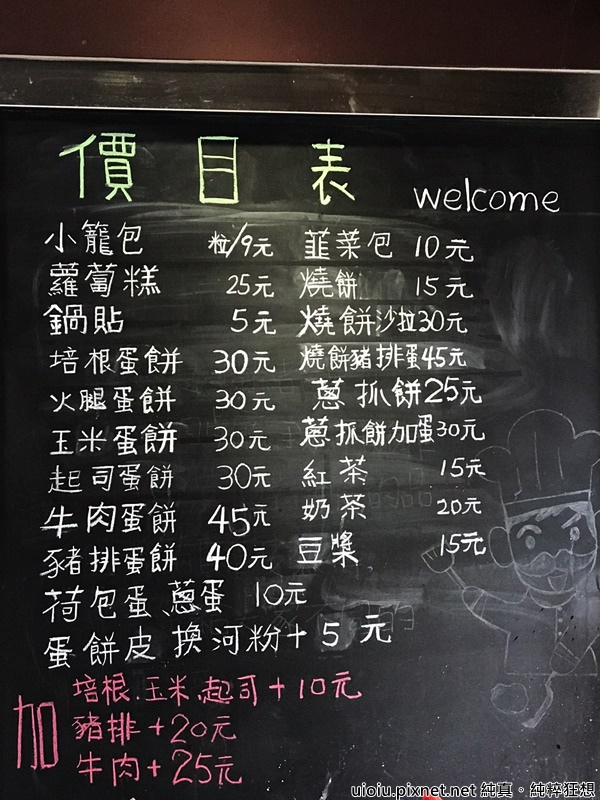 價目表 welcome
小籠包 粒/9元
蘿蔔糕 25元
鍋貼 5元
培根蛋餅 30元
火腿蛋餅 30元
玉米蛋餅 30元
起司蛋餅 30元
牛肉蛋餅 45元
豬排蛋餅 40元
荷包蛋、蔥蛋 10元
蛋餅皮換河粉+5元
韮菜包 10元
燒餅 15元
燒餅沙拉30元
燒餅豬排蛋45元
蔥抓餅25元
蔥抓餅加蛋30元
紅茶 15元
奶茶 20元
豆漿 15元
加
培根.玉米.起司+10元
豬排+20元
牛肉+25元
uioiu.pixnet.net 純真。純粹狂想